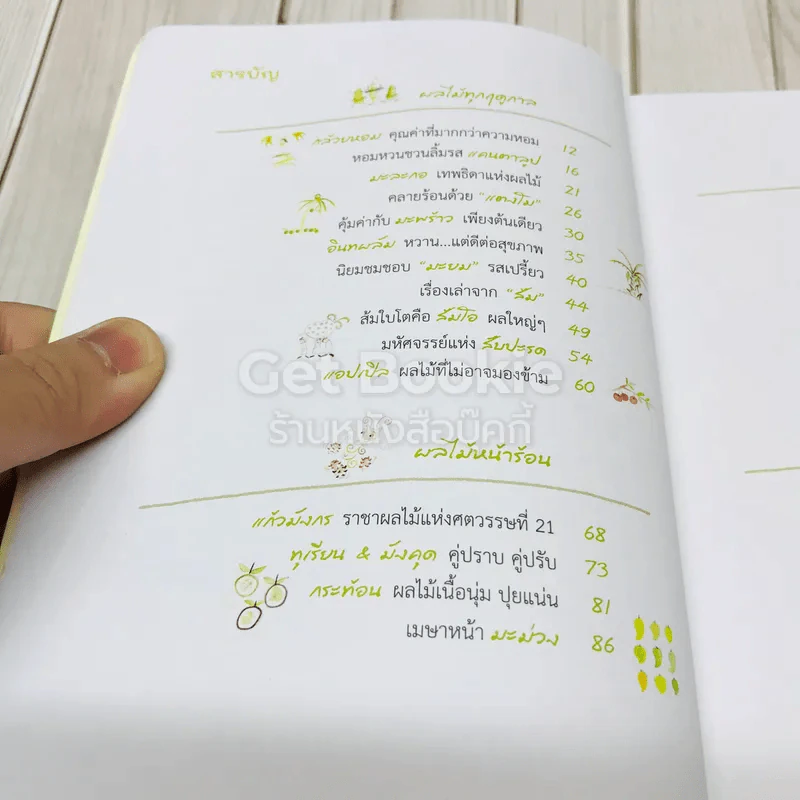 สารบัญ
ผลไม้ทุกฤดูกาล
กล้วยหอม คุณค่าที่มากกว่าความหอม 12
หอมหวนชวนลิ้มรส แคนตาลูป 16
มะละกอ เทพธิดาแห่งผลไม้ 21
คลายร้อนด้วย "แตงโม" 26
คุ้มค่ากับ มะพร้าว เพียงต้นเดียว 30
อินทผลัม หวาน...แต่ดีต่อสุขภาพ 35
นิยมชมชอบ "มะยม" รสเปรี้ยว 40
เรื่องเล่าจาก "ส้ม" 44
ส้มใบโตคือ ส้มโอ ผลใหญ่ๆ 49
มหัศจรรย์แห่ง สับปะรด 54
แอปเปิล ผลไม้ที่ไม่อาจมองข้าม 60
Get Bookie
ร้านหนังสือบุ๊คกี้
ผลไม้หน้าร้อน
แก้วมังกร ราชาผลไม้แห่งศตวรรษที่ 21 68
ทุเรียน & มังคุด คู่ปราบ คู่ปรับ 73
กระท้อน ผลไม้เนื้อนุ่ม ปุยแน่น 81
เมษาหน้า มะม่วง 86